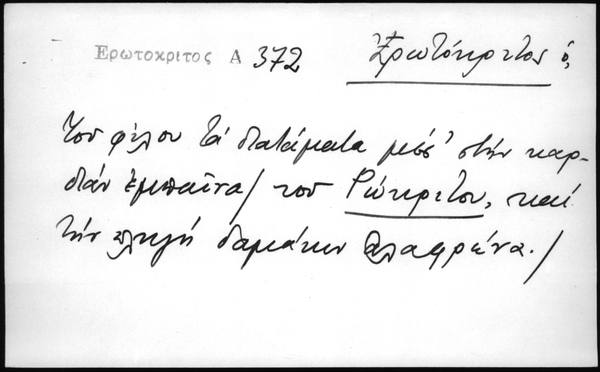 Ερωτοκριτος Α 372 Ἐρωτόκριτος ὁ,
Τοῦ φίλου τά διατάματα μέσ' στήν καρ-
διάν ἐμπαῖνα/ τοῦ Ρώκριτου, καί
τήν πληγή δαμάκιν ἀλαφραῖνα./